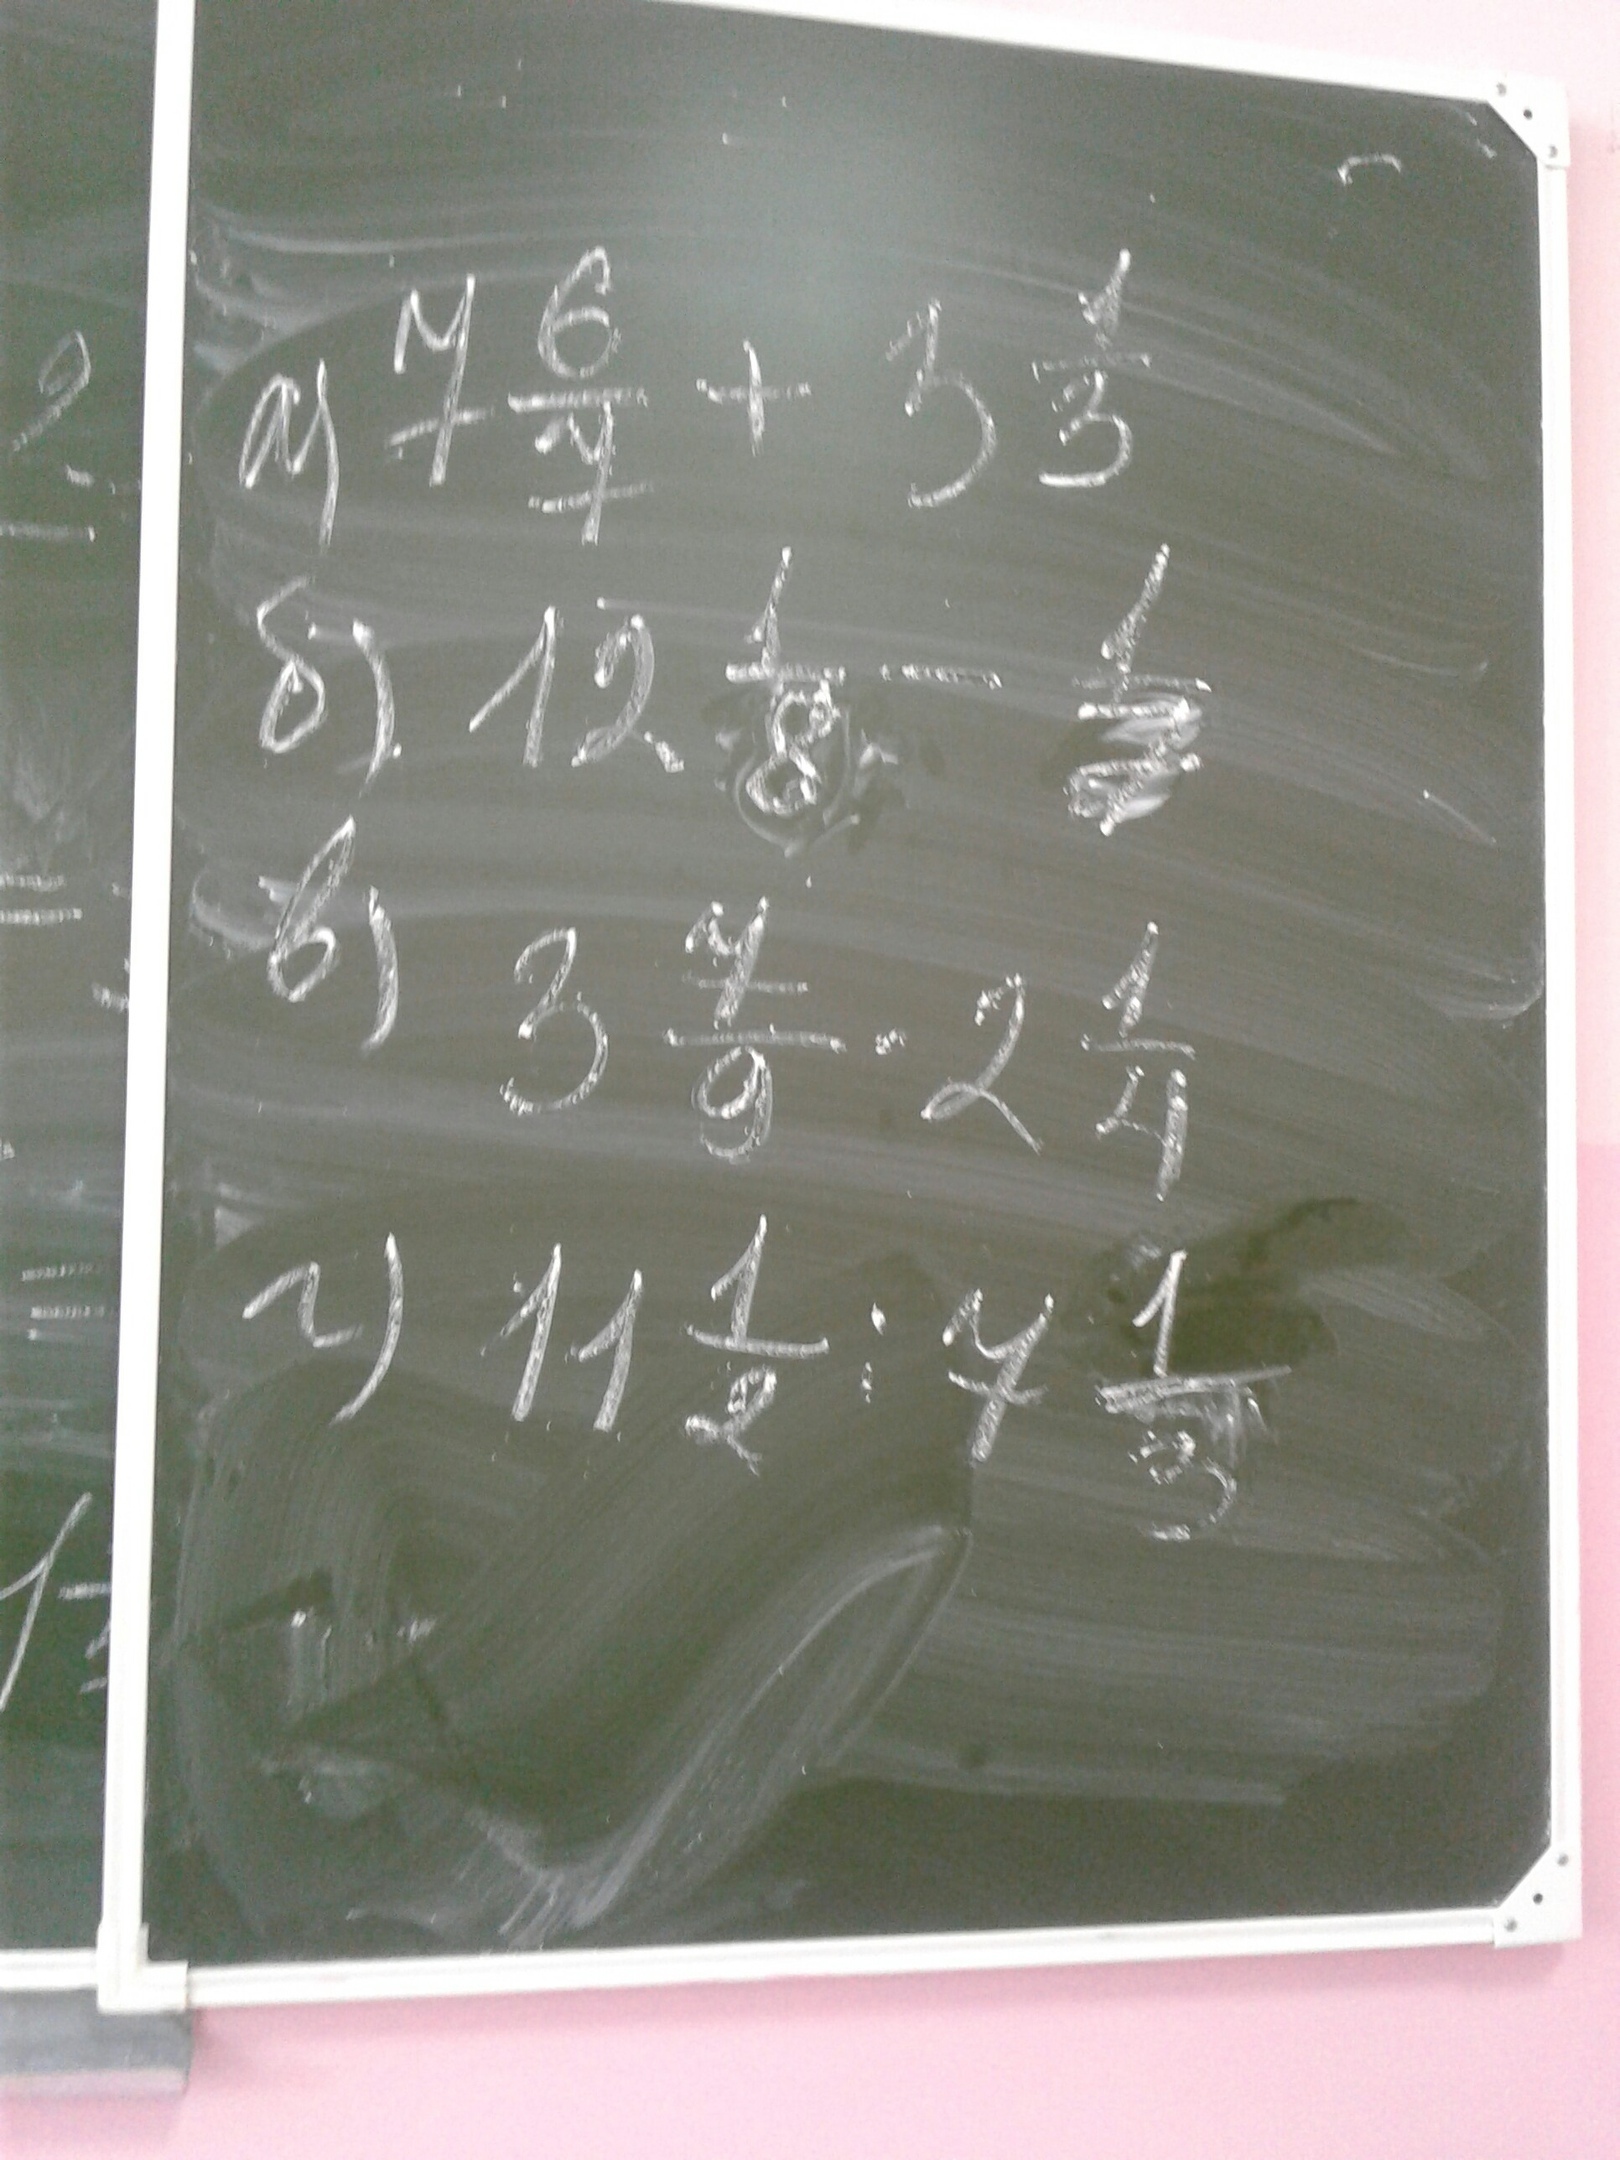 а) 7 6/7 + 3 1/3
б) 12 1/8 - 1/
в) 3 7/9 · 2 1/4
г) 11 1/2 : 7 1/3